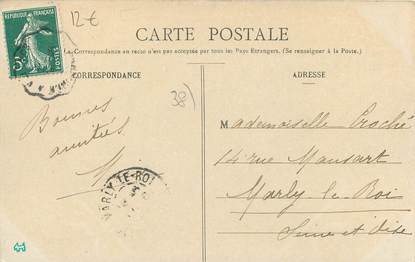 12€
CARTE POSTALE
La Correspondance au recto n'est pas acceptée par tous les Pays Etrangers. (Se renseigner à la Poste.)
CORRESPONDANCE
ADRESSE
REPUBLIQUE FRANÇAISE
5c
POSTES
38)
Bonnes
amitiés
MARLY-LE-ROI
Mademoiselle Proché
14 rue Mansart
Marly-le-Roi
Seine et Oise